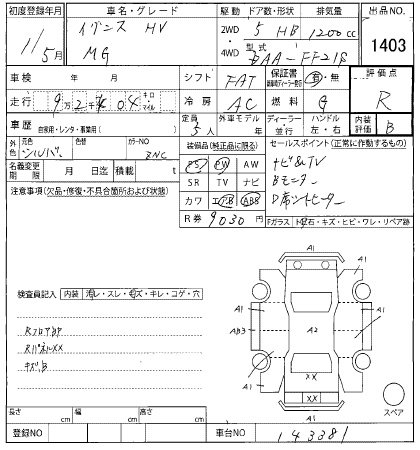 初度登録年月 車名・グレード 駆動 ドア数・形状 排気量 出品NO.
11/5月 イグニス HV MG 2WD 4WD 5 HB 1200cc 1403
型式 DAA-FF21S
車検 年 月 シフト FAT 保証書 有・無 評価点
走行 9万2千404 キロ マイル 冷房 AC 燃料 G R
車歴 自家用・レンタ・事業用( ) 定員 5人 外車モデル 年 ディーラー 並行 ハンドル 左・右 内装評価 B
外色 元色 シルバー 色 カラーNO ZNC 装備品(純正品に限る) セールスポイント(正常に作動するもの)
名義変更期限 月 日迄 積載 t PS PW AW
SR TV ナビ
カワ エアB ABS
ナビ&TV
Bモニター
D席シートヒーター
注意事項(欠品・修復・不具合箇所および状態)
R券 9030円 Fガラス ト石・キズ・ヒビ・ワレ・リペア跡
検査員記入 内装 汚レ・スレ・キズ・キレ・コゲ・穴
RフロアAP
RパネルXX
キズB
A1
A1 A1
A1
AB3 A2 A1
A1 A1
XX
XX
A1
スペア
長さ cm 幅 cm 高さ cm
登録NO 車台NO 143381